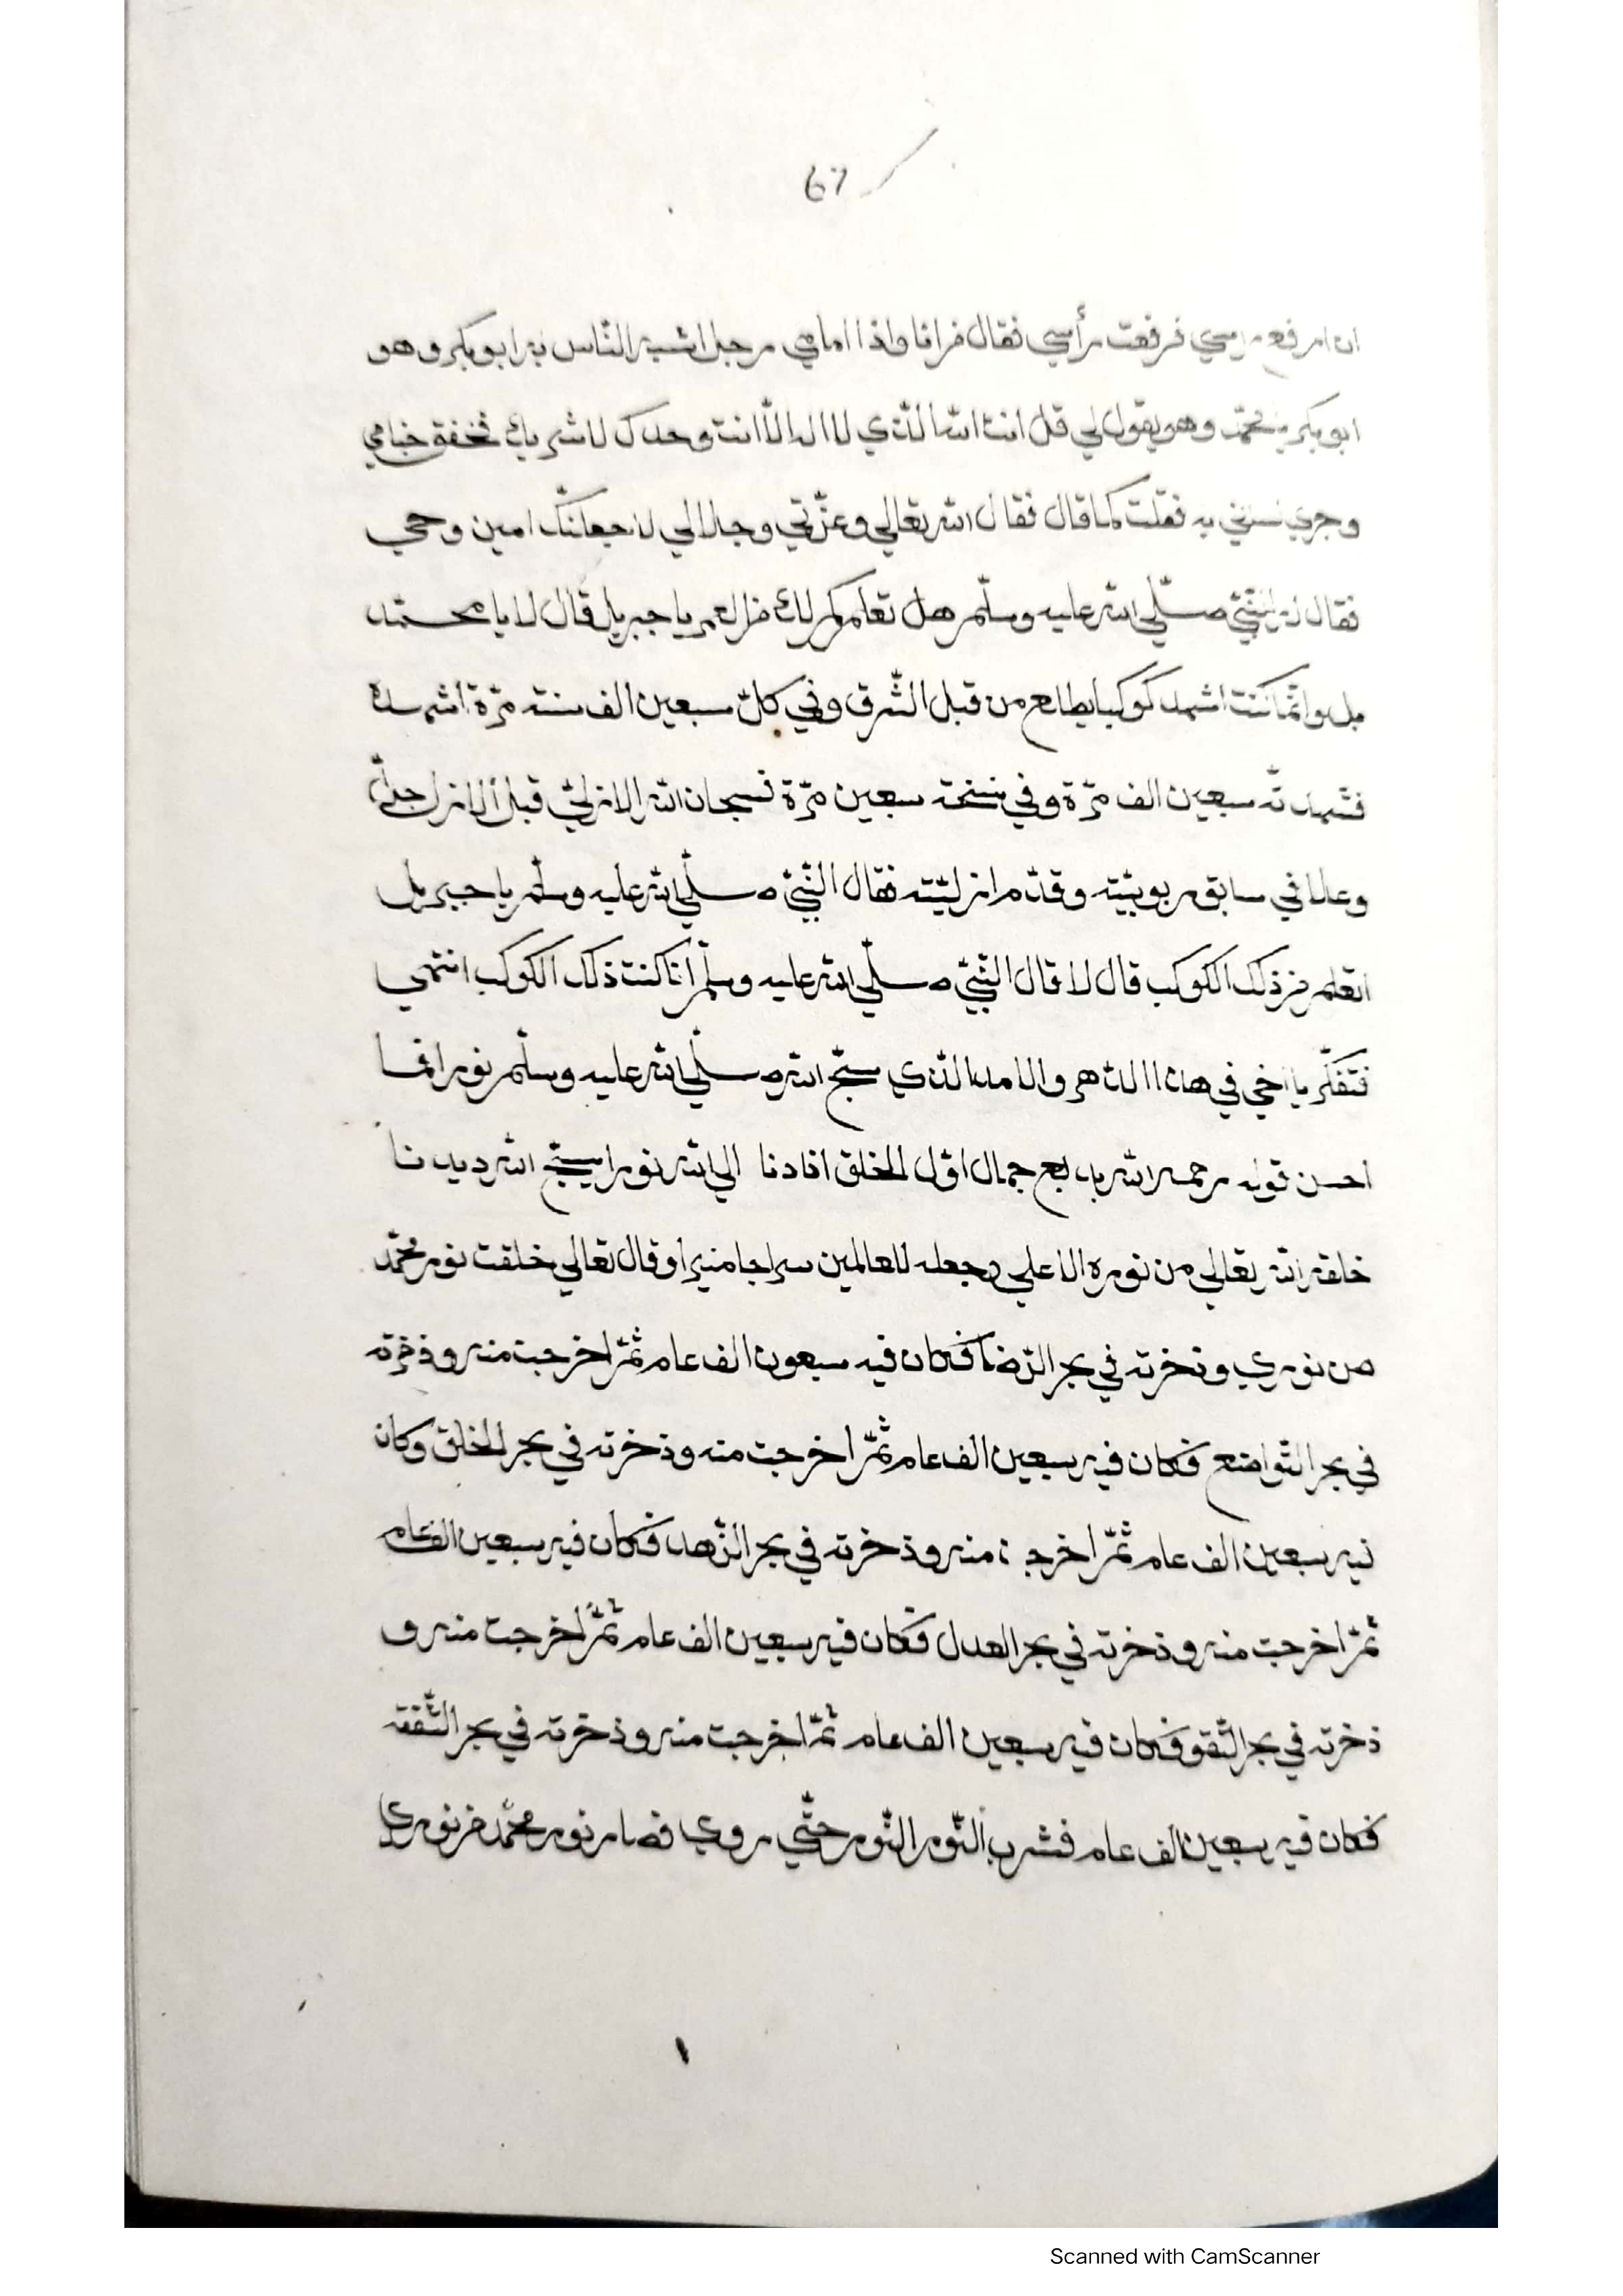 67
ان ارفع راسي فرفعت رأسي فقال من انا واذا امامي رجل اشبه الناس به ابو بكر وهو
ابو بكر يا محمّد وهو يقول لي قل انت اللّه الّذي لا اله الّا انت وحدك لا شريك فخفق
وجري لسني به فقلت كما قال فقال اللّه تعالي وعزّتي وجلالي لاجعلنّك امين وحي
فقال له النّبيّ صلّي اللّه عليه وسلّم هل تعلم كم لك من العمر يا جبريل قال لا يا محمّد
بل وانّما كنت اشهد كوكبا يطلع من قبل الشّرق وفي كلّ سبعين الف سنة مرّة اشهده
فشهدته سبعين الف مرّة وفي نسخة سبعين مرّة فسبحان اللّه الازليّ قبل الازل
وعلا في سابق ربوبيّته وقدّم ازليّته فقال النّبيّ صلّي اللّه عليه وسلّم يا جبريل
اتعلم من ذلك الكوكب قال لا قال النّبيّ صلّي اللّه عليه وسلّم انا كنت ذلك الكوكب انتهي
فتفكّر يا اخي في هذا الدّهر والامد الّذي سبّح اللّه صلّي اللّه عليه وسلّم نورا فما
احسن قوله رحمه اللّه بديع جمال اوّل الخلق الي اللّه نورا يسبّح اللّه ديدنا
خلقه اللّه تعالي من نوره الاعلي وجعله للعالمين سراجا منيرا وقال تعالي خلقت نور محمّد
من نوري وذخرته في بحر الرّضا فكان فيه سبعون الف عام ثمّ اخرجت منه وذخرته
في بحر التّواضع فكان فيه سبعين الف عام ثمّ اخرجت منه وذخرته في بحر الخلق وكان
فيه سبعين الف عام ثمّ اخرجت منه وذخرته في بحر الزّهد فكان فيه سبعين الف عام
ثمّ اخرجت منه وذخرته في بحر العدل فكان فيه سبعين الف عام ثمّ اخرجت منه و
ذخرته في بحر التّقو فكان فيه سبعين الف عام ثمّ اخرجت منه وذخرته في بحر الثّقة
فكان فيه سبعين الف عام فشرب النّور النّور حتّي روي فصار نور محمّد من نوري
Scanned with CamScanner